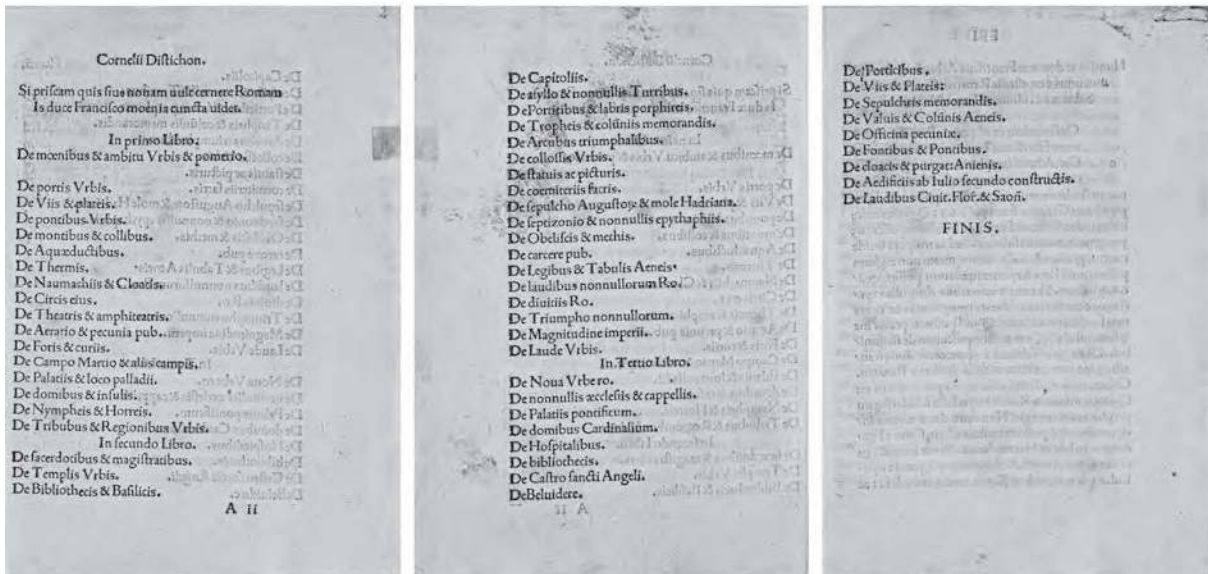 Cornelii Diſtichon.
Si priſcam quis ſiue nouam uult cernere Romam
Is duce Franciſco mœnia cuncta uidet.
In primo Libro.
De mœnibus & ambitu Vrbis & pomerio.
De portis Vrbis.
De Viis & plateis.
De pontibus Vrbis.
De montibus & collibus.
De Aquæductibus.
De Thermis.
De Naumachiis & Cloacis.
De Circis eius.
De Theatris & amphiteatris.
De Aerario & pecunia pub.
De Foris & curiis.
De Campo Martio & aliis campis.
De Palatiis & loco palladii.
De domibus & inſulis.
De Nympheis & Horreis.
De Tribubus & Regionibus Vrbis.
In ſecundo Libro.
De ſacerdotibus & magiſtratibus.
De Templis Vrbis.
De Bibliothecis & Baſilicis.
A ii
De Capitoliis.
De aſyllo & nonnullis Turribus.
De Porticibus & labris porphireis.
De Tropheis & colūniis memorandis.
De Arcubus triumphalibus.
De colloſſis Vrbis.
De ſtatuis ac picturis.
De coemiteriis ſacris.
De ſepulcho Auguſtoꝝ & mole Hadriana.
De ſeptizonio & nonnullis epythaphiis.
De Obeliſcis & methis.
De carcere pub.
De Legibus & Tabulis Aeneis.
De laudibus nonnullorum Ro.
De diuitiis Ro.
De Triumpho nonnullorum.
De Magnitudine imperii.
De Laude Vrbis.
In Tertio Libro.
De Noua Vrbe ro.
De nonnullis æccleſiis & cappellis.
De Palatiis pontificum.
De domibus Cardinalium.
De Hoſpitalibus.
De bibliothecis.
De Caſtro ſancti Angeli.
De Beluidere.
De Porticibus.
De Viis & Plateis:
De Sepulchris memorandis.
De Valuis & Colūnis Aeneis.
De Officina pecuniæ.
De Fontibus & Pontibus.
De cloacis & purgat: Anienis.
De Aedificiis ab Iulio ſecundo conſtructis.
De Laudibus Ciuit. Flor. & Saoñ.
FINIS.